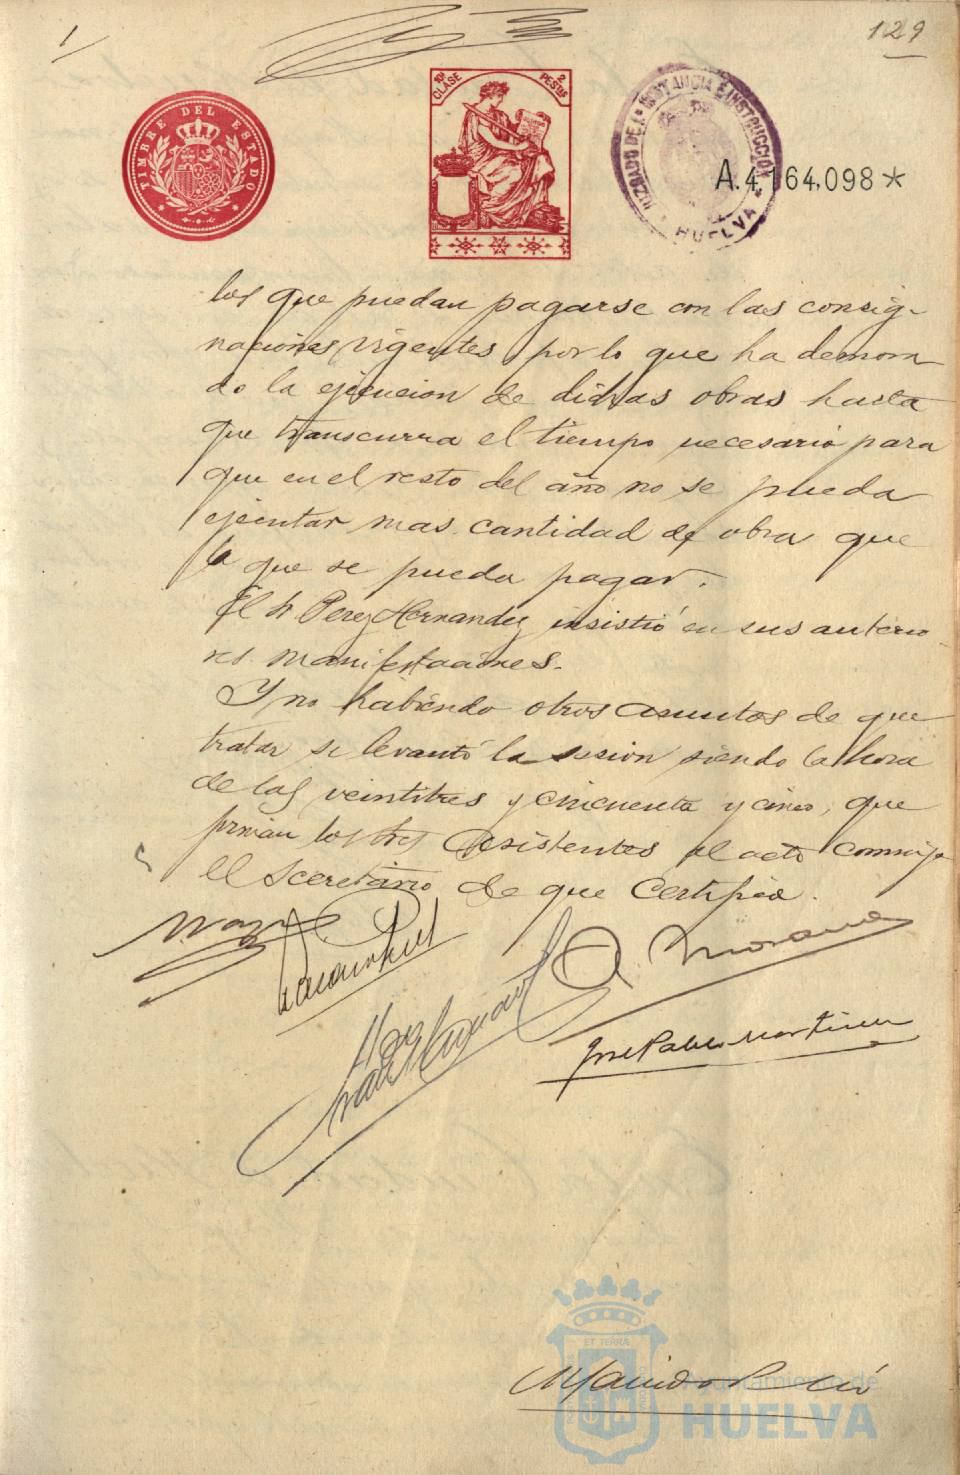 1
129
TIMBRE DEL ESTADO
10ª CLASE
2 PESETAS
JUZGADO DE 1ª INSTANCIA E INSTRUCCIÓN
HUELVA
A.4,164,098*
los que puedan pagarse con las consig-
naciones vigentes, por lo que ha demora
do la ejecucion de dichas obras hasta
que transcurra el tiempo necesario para
que en el resto del año no se pueda
ejecutar mas cantidad de obra que
la que se pueda pagar.
El Sr. Perez Hernandez insistió en sus anterio
res manifestaciones.
Y no habiendo otros asuntos de que
tratar se levantó la sesion siendo la hora
de las veintitres y cincuenta y cinco, que
firman los Sres Asistentes al acto conmigo
el Secretario de que certifico.
A Moreno
José Pablo Martinez
ET TERRA
Ayuntamiento de
HUELVA